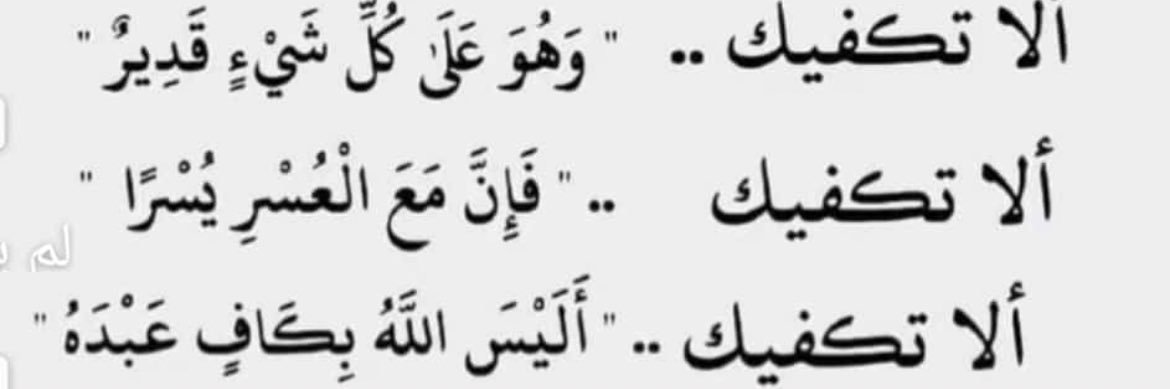 ألا تكفيك .. " وَهُوَ عَلَىٰ كُلِّ شَيْءٍ قَدِيرٌ "
ألا تكفيك .. " فَإِنَّ مَعَ الْعُسْرِ يُسْرًا "
لم
ألا تكفيك .. " أَلَيْسَ اللَّهُ بِكَافٍ عَبْدَهُ "